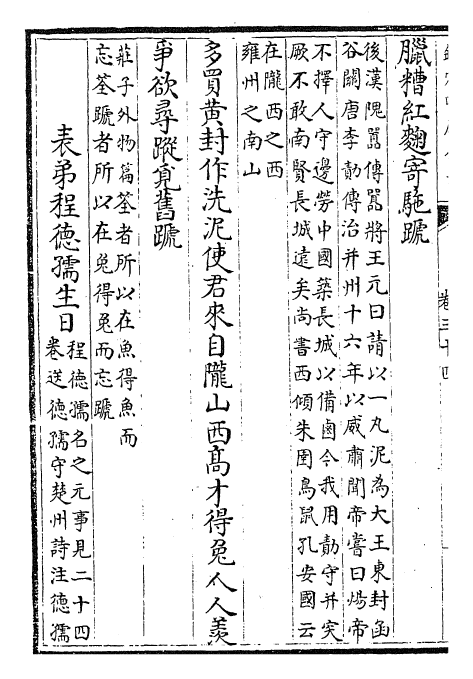 臘糟紅麴寄駞蹏
後漢隗囂傳囂將王元曰請以一丸泥為大王東封函
谷關唐李勣傳治并州十六年以威肅聞帝嘗曰煬帝
不擇人守邊勞中國築長城以備鹵今我用勣守并突
厥不敢南賢長城遠矣尚書西傾朱圉鳥鼠孔安國云
在隴西之西
雍州之南山
多買黄封作洗泥使君來自隴山西高才得兔人人羨
爭欲尋蹤覓舊蹏
莊子外物篇荃者所以在魚得魚而
忘荃蹏者所以在兔得兔而忘蹏
表弟程德孺生日
程德孺名之元事見二十四
卷送德孺守楚州詩注德孺
卷三十四